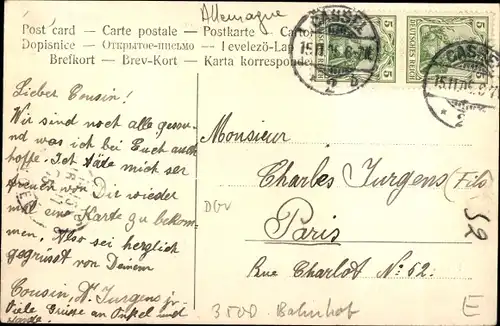 Allemagne
Post card — Carte postale — Postkarte — Carto
Dopisnice — Открытое-письмо — Levelező-Lap
Brefkort — Brev-Kort — Karta korresponde
5 DEUTSCHES REICH 5
CASSEL
15.11.05. 6-7
2 b.
CASSEL
15.11.05. 6-7
* 2
Lieber Cousin!
Wir sind noch alle gesun-
d was ich bei Euch auch
hoffe. Ich täte mich ser
freuen von Dir wieder
mal eine Karte zu bekom-
men, Also sei herzlich
gegrüsst von Deinem
Cousin, A. Jurgens jr.
Viele Grüsse an Onkel und
Monsieur
Charles Jurgens (Fils
Paris
Rue Charlot No: 52.
52
3500 Bahnhof
E